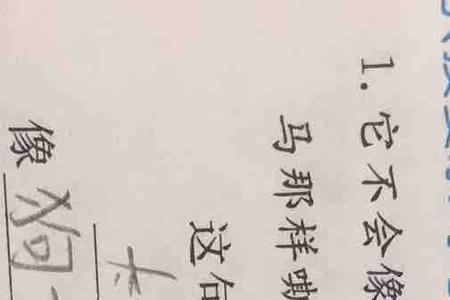 1.它不会像
马那样嘶
这句
像狗